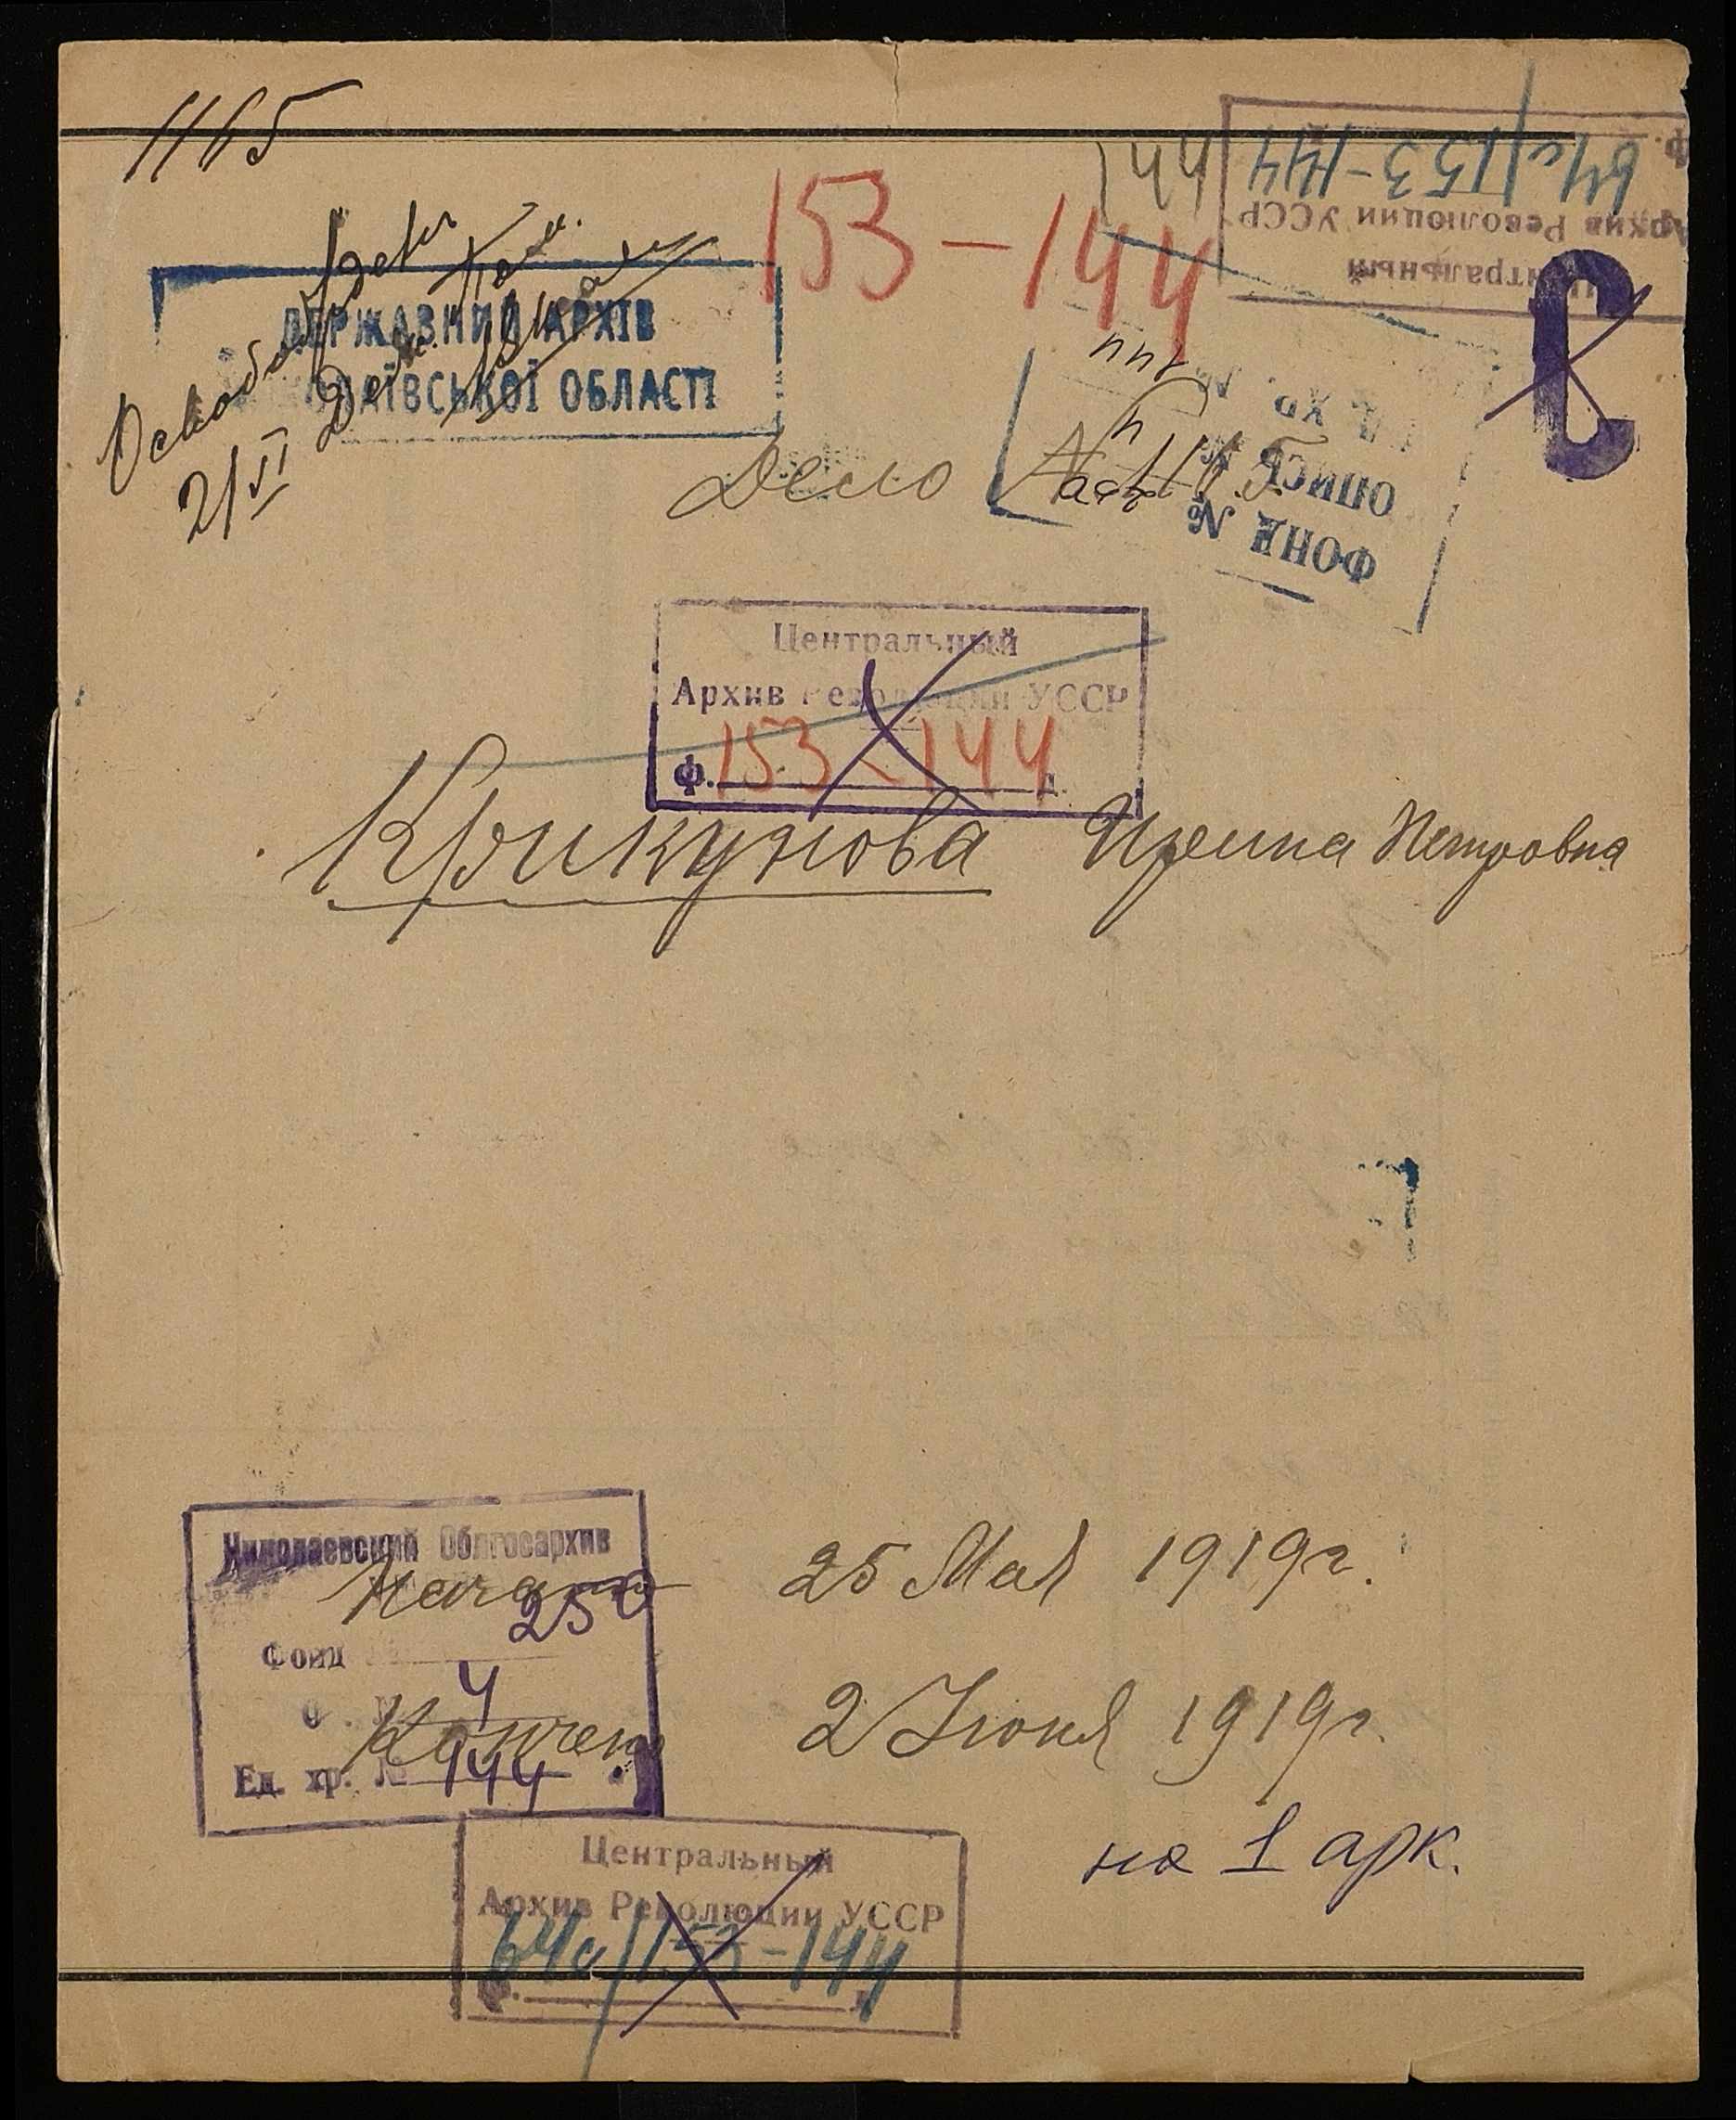 1165
153-144
64с/153-144
Архив Революции УССР
Центральный
144
С
Освобожден
2/VI
ДЕРЖАВНИЙ АРХІВ
ОБЛАСТІ
Дело №
ФОНД №
ОПИСЬ №
ЕД. ХР. №
Центральный
Архив Революции УССР
Ф. 153-144 д.
Крикунова Ирина Петровна
Николаевский Облгосархив
Начато 25 Мая 1919г.
Фонд 250
4
Кончено 2 Июня 1919г.
Ед. хр. № 144
на 1 арк.
Центральный
Архив Революции УССР
64с/153-144